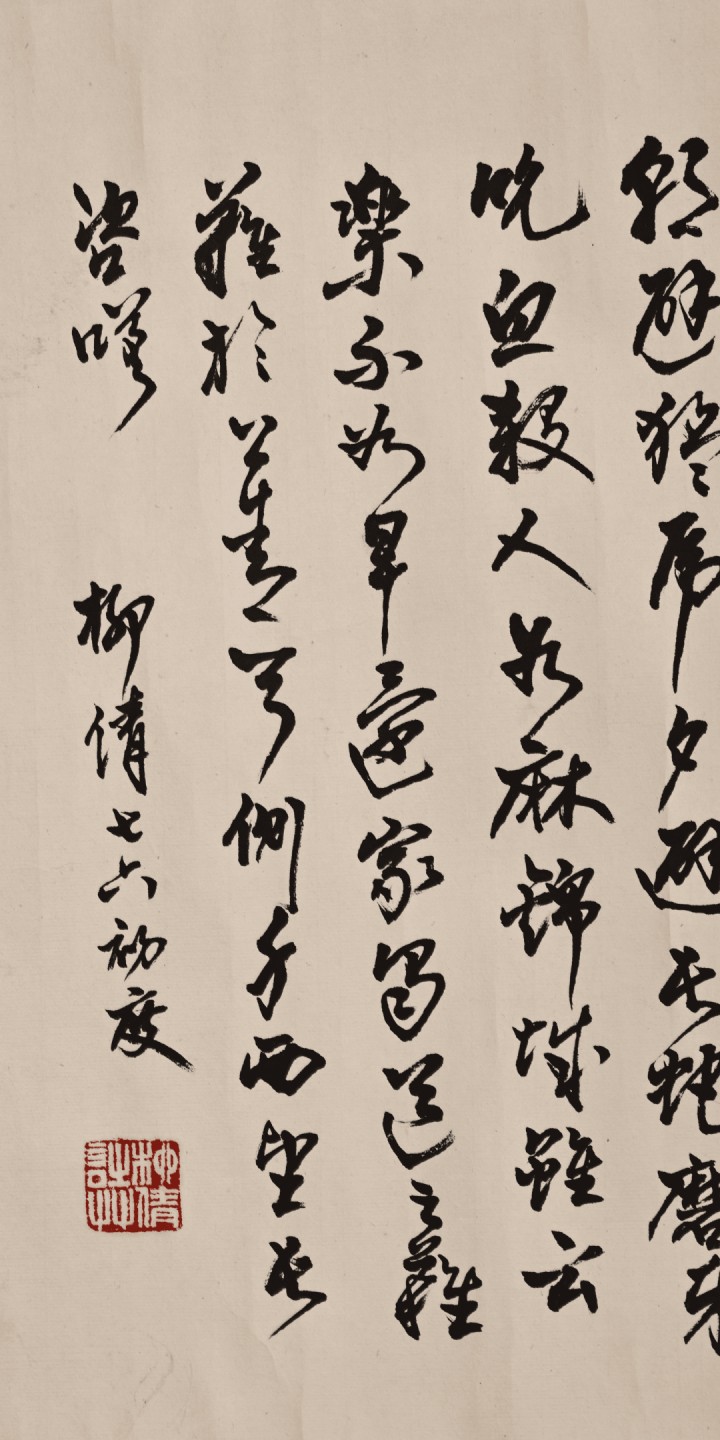 朝避猛虎夕避長蛇磨牙
吮血殺人如麻錦城雖云
樂不如早還家蜀道之難
難於上青天側身西望長
咨嗟
柳倩七六初度
柳倩